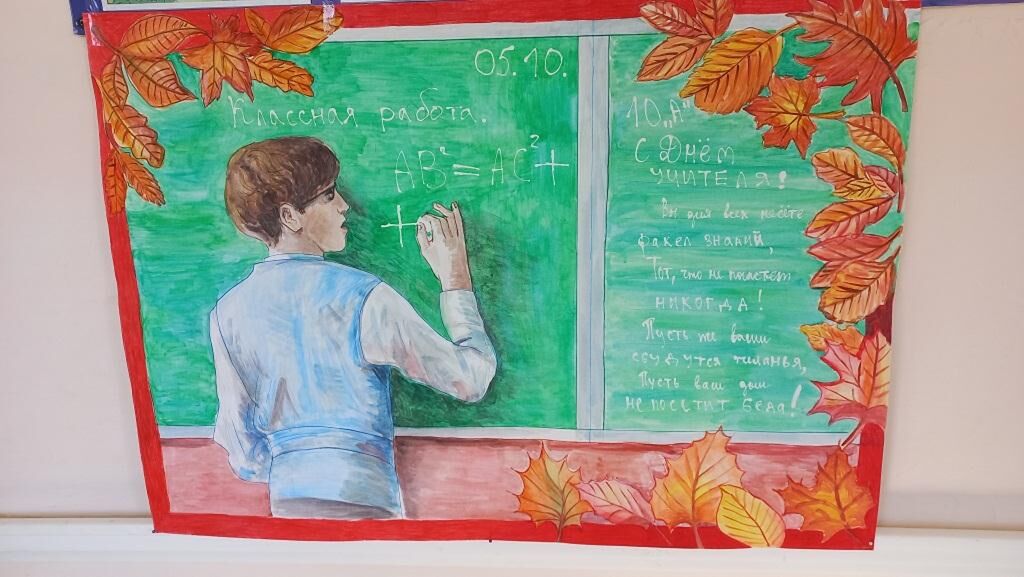 05.10.
Классная работа.
AB²=AC²+
+
10 „А"
С Днём
УЧИТЕЛЯ!
Вы для всех несёте
факел знаний,
Тот, что не погаснет
НИКОГДА!
Пусть же ваши
сбудутся желанья,
Пусть ваш дом
не посетит беда!